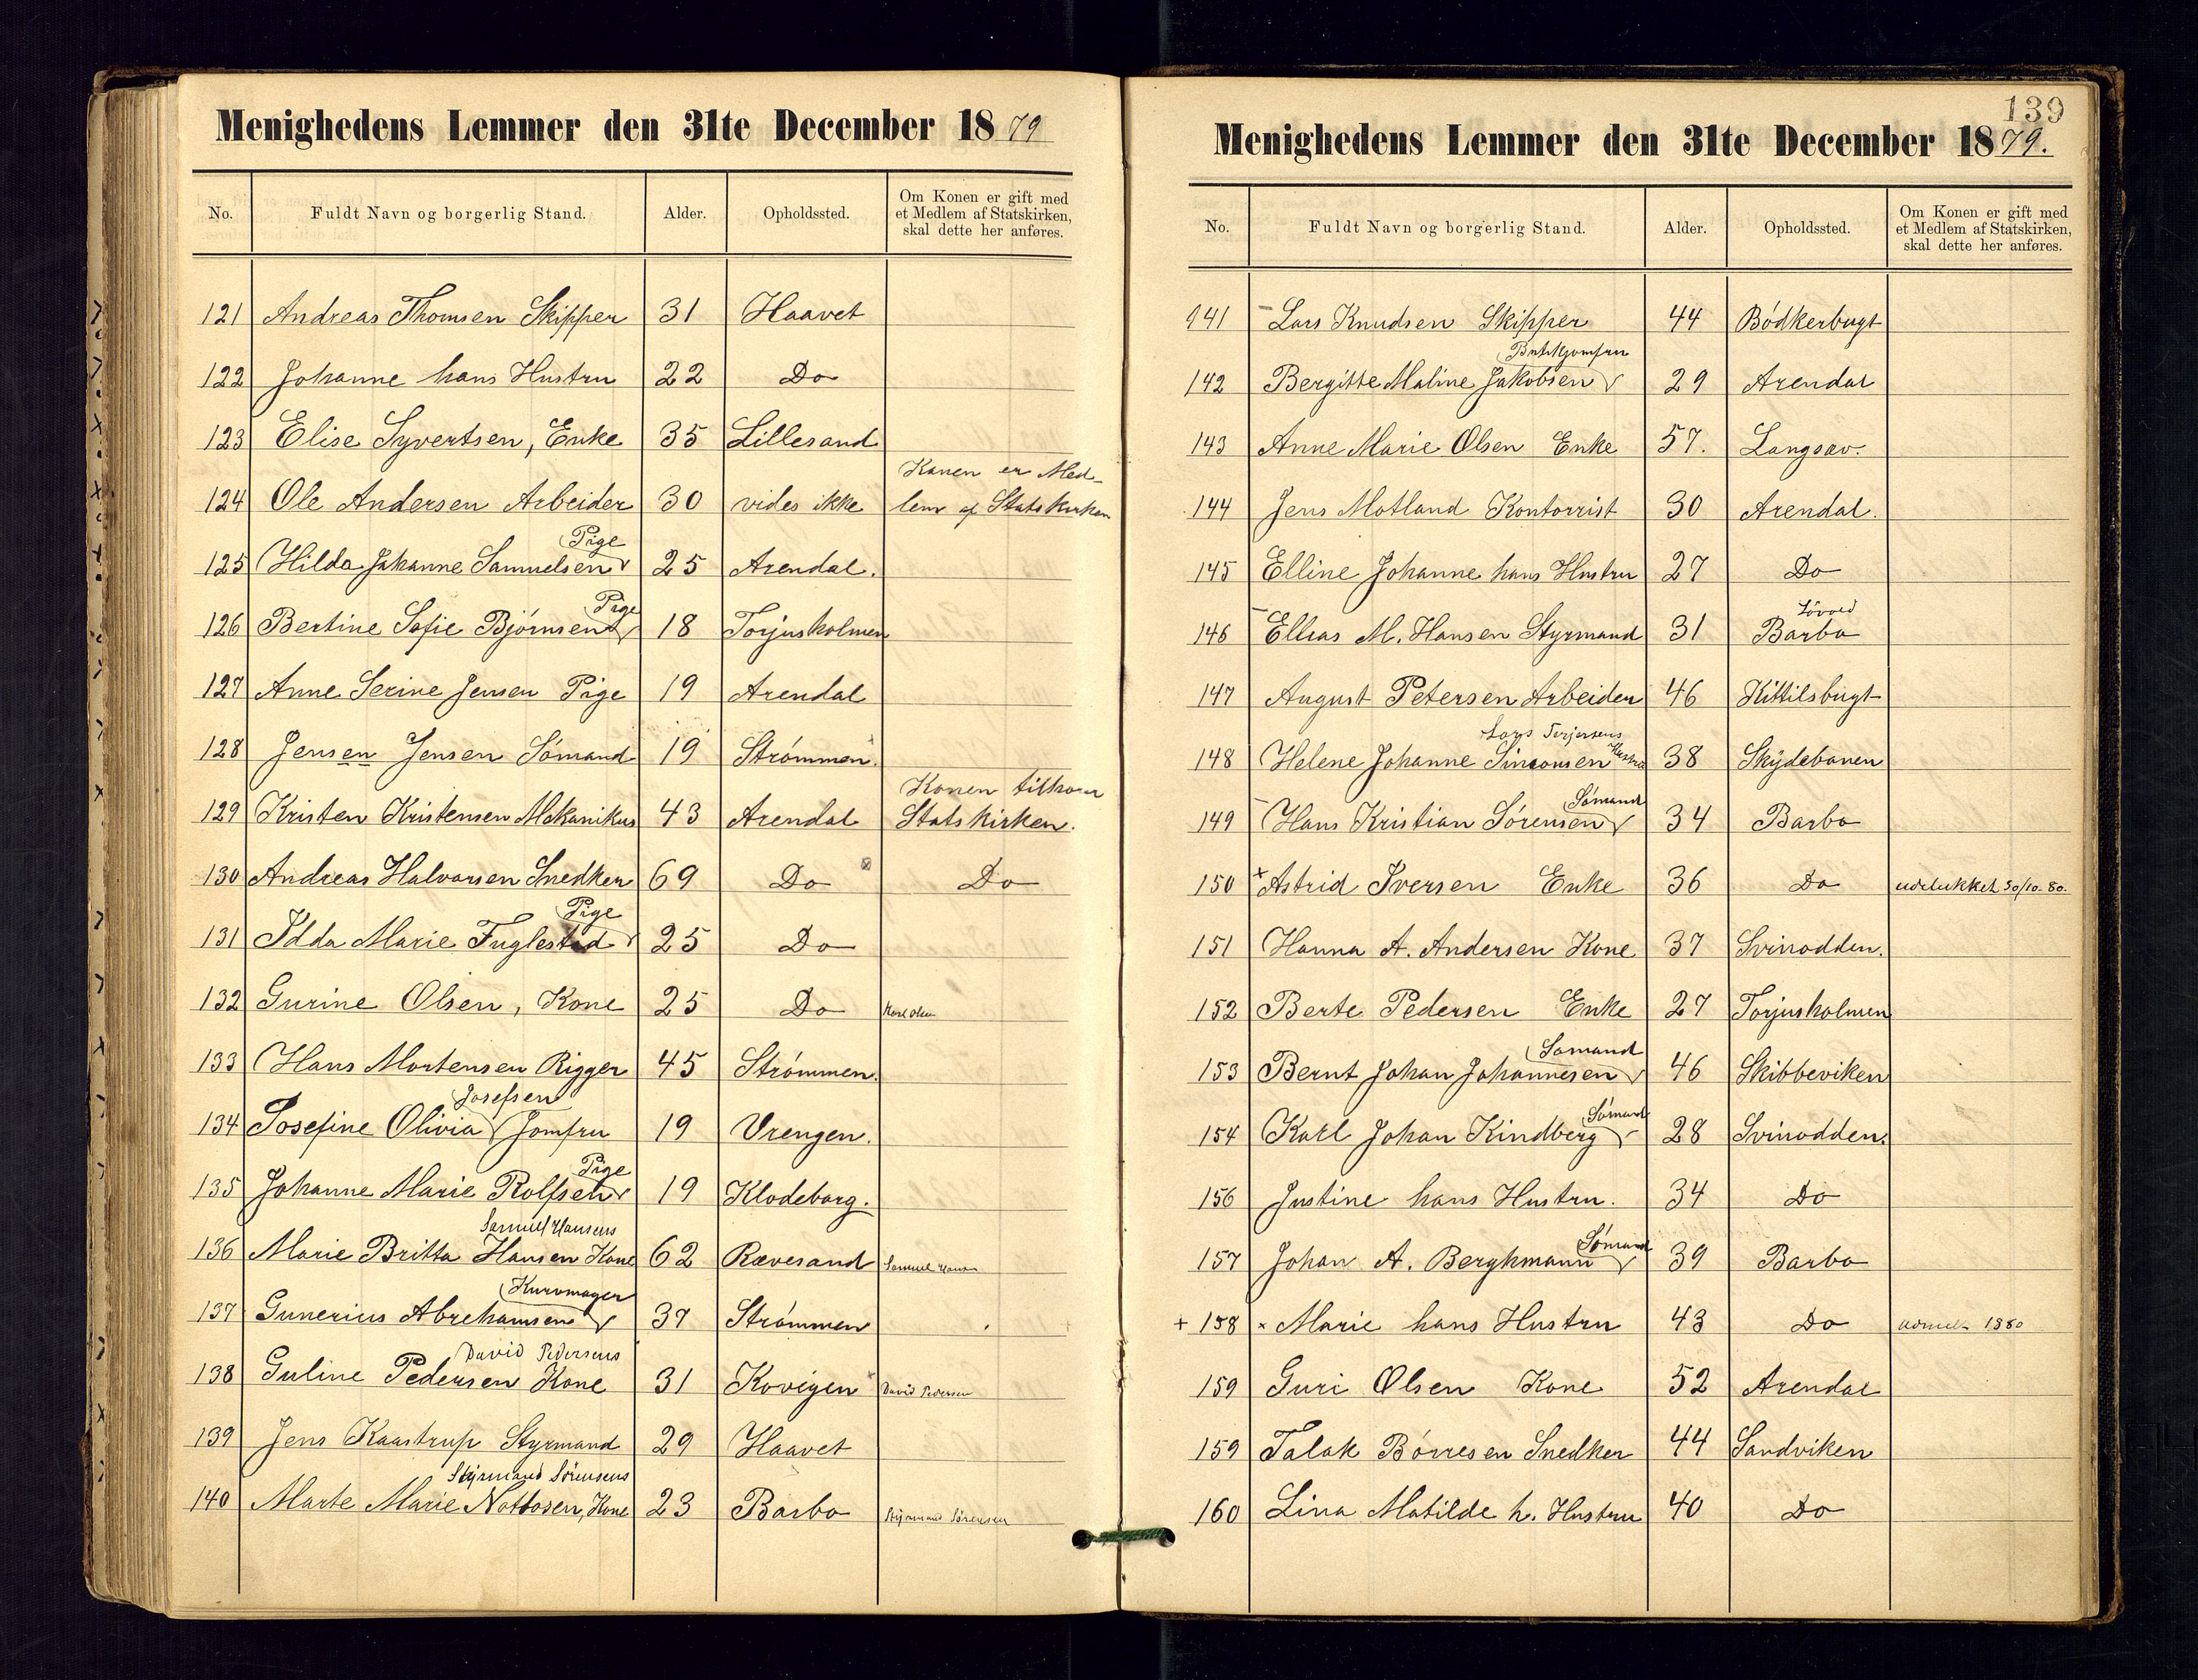 Menighedens Lemmer den 31te December 1879
No. Fuldt Navn og borgerlig Stand. Alder. Opholdssted. Om Konen er gift med et Medlem af Statskirken, skal dette her anføres.
121 Andreas Thomsen Skipper 31 Haavet
122 Johanne hans Hustru 22 Do
123 Elise Syvertsen, Enke 35 Lillesand
124 Ole Andersen Arbeider 30 vides ikke Konen er Med-
lem af Statskirken
125 Hilda Johanne Samuelsen Pige 25 Arendal.
126 Bertine Sofie Bjørnsen Pige 18 Torjusholmen
127 Anne Serine Jensen Pige 19 Arendal
128 Jensen Jensen Sømand 19 Strømmen.
129 Kristen Kristensen Mekanikus 43 Arendal Konen tilhører
Statskirken.
130 Andreas Halvorsen Snedker 69 Do Do
131 Idda Marie Fuglestad Pige 25 Do
132 Gurine Olsen, Kone 25 Do Karl Olsen
133 Hans Mortensen Rigger 45 Strømmen.
134 Josefine Olivia Josefsen Jomfru 19 Vrengen.
135 Johanne Marie Rolfsen Pige 19 Klodeborg.
136 Marie Britta Samuel Hansens Hansen Kone 62 Rævesand Samuel Hansen
137 Gunerius Abrehamsen Kurvmager 37 Strømmen
138 Guline David Pedersens Pedersen Kone 31 Kovigen David Pedersen
139 Jens Kaastrup Styrmand 29 Haavet
140 Marte Marie Styrmand Sørensens Nottosen, Kone 23 Barbo Styrmand Sørensen
139
Menighedens Lemmer den 31te December 1879.
No. Fuldt Navn og borgerlig Stand. Alder. Opholdssted. Om Konen er gift med et Medlem af Statskirken, skal dette her anføres.
141 Lars Knudsen Skipper 44 Bödkerbugt
142 Bergitte Maline Jakobsen 29 Arendal
143 Anne Marie Olsen Enke 57. Langsæv.
144 Jens Motland Kontorrist 30 Arendal.
145 Elline Johanne hans Hustru 27 Do
146 Ellias M. Hansen Styrmand 31 Barbo
147 August Petersen Arbeider 46 Kittilsbugt
148 Helene Johanne Simonsen Lars Terjesens Hustru 38 Skydebanen
149 Hans Kristian Sörensen Sömand 34 Barbo
150 + Astrid Iversen Enke 36 Do udelukket 30/10. 80.
151 Hanna A. Andersen Kone 37 Svinodden.
152 Berte Pedersen Enke 27 Torjusholmen
153 Bernt Johan Johannesen Sømand 46 Skibbeviken
154 Karl Johan Kindberg Sömand 28 Svinodden.
156 Justine hans Hustru. 34 Do
157 Johan A. Berghmann Sömand 39 Barbo
+ 158 × Marie hans Hustru 43 Do udmeldt 1880
159 Guri Olsen Kone 52 Arendal
159 Talak Börresen Snedker 44 Sandviken
160 Lina Matilde h. Hustru 40 Do